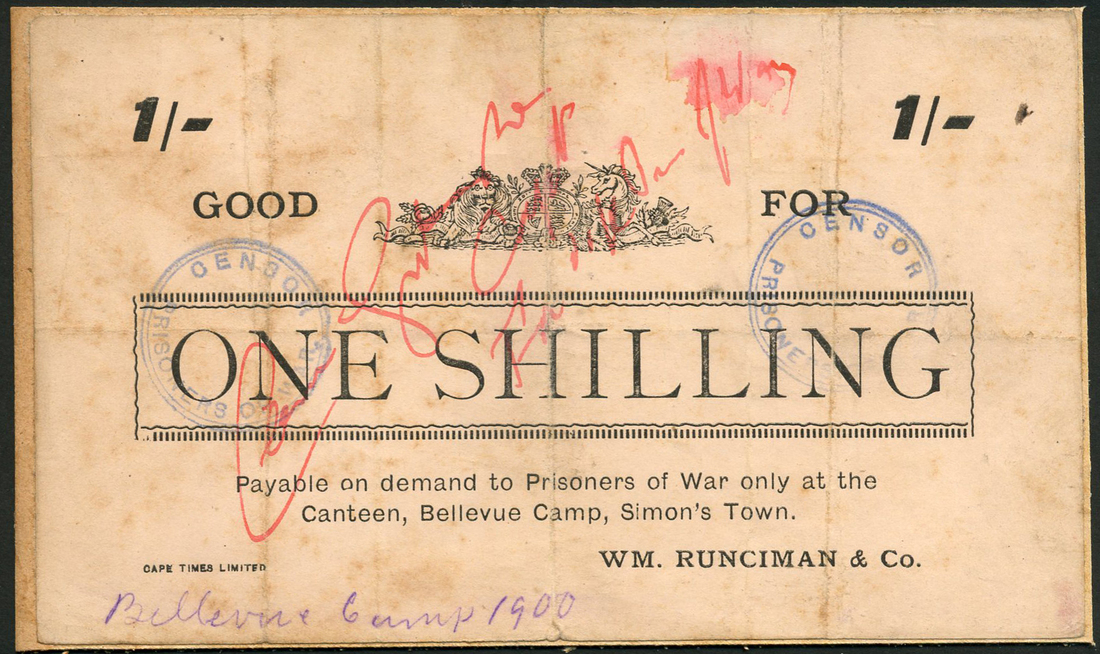 1/- 1/-
GOOD FOR
CENSOR PRISONERS OF WAR
CENSOR PRISONE
ONE SHILLING
Payable on demand to Prisoners of War only at the
Canteen, Bellevue Camp, Simon's Town.
WM. RUNCIMAN & Co.
CAPE TIMES LIMITED
Bellevue Camp 1900